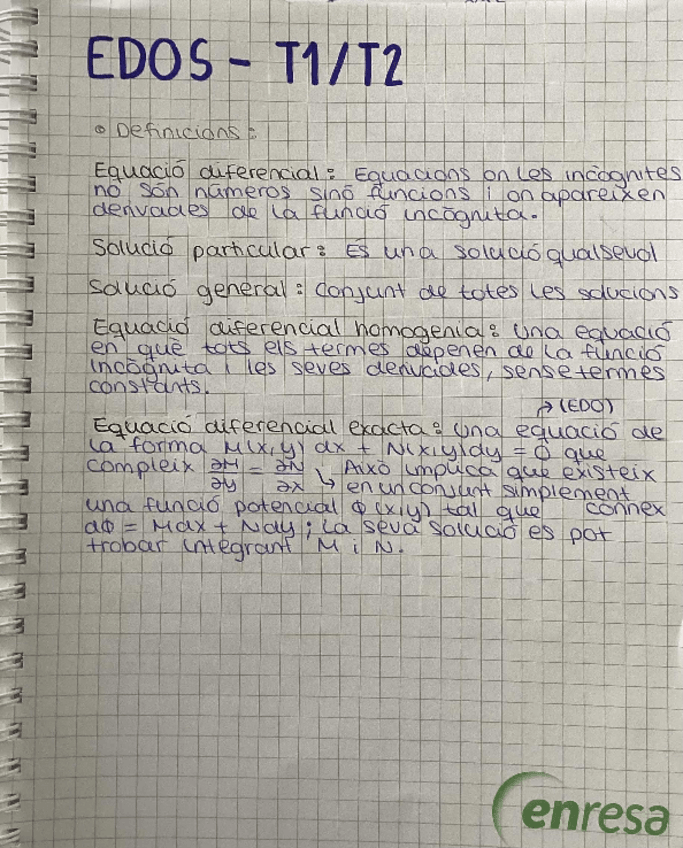 EDOS - T1/T2
• Definicions:
Equació diferencial: Equacions on les incògnites
no són números sinó funcions i on apareixen
derivades de la funció incògnita.
Solució particular: És una solució qualsevol
Solució general: Conjunt de totes les solucions
Equació diferencial homogenia: Una equació
en què tots els termes depenen de la funció
incògnita i les seves derivades, sense termes
constants.
↗(EDO)
Equació diferencial exacta: Una equació de
la forma M(x,y) dx + N(x,y)dy = 0 que
compleix ∂M/∂y = ∂N/∂x. Això implica que existeix
↳ en un conjunt simplement connex
una funció potencial Φ(x,y) tal que
dΦ = Mdx + Ndy; la seva solució es pot
trobar integrant M i N.
enresa